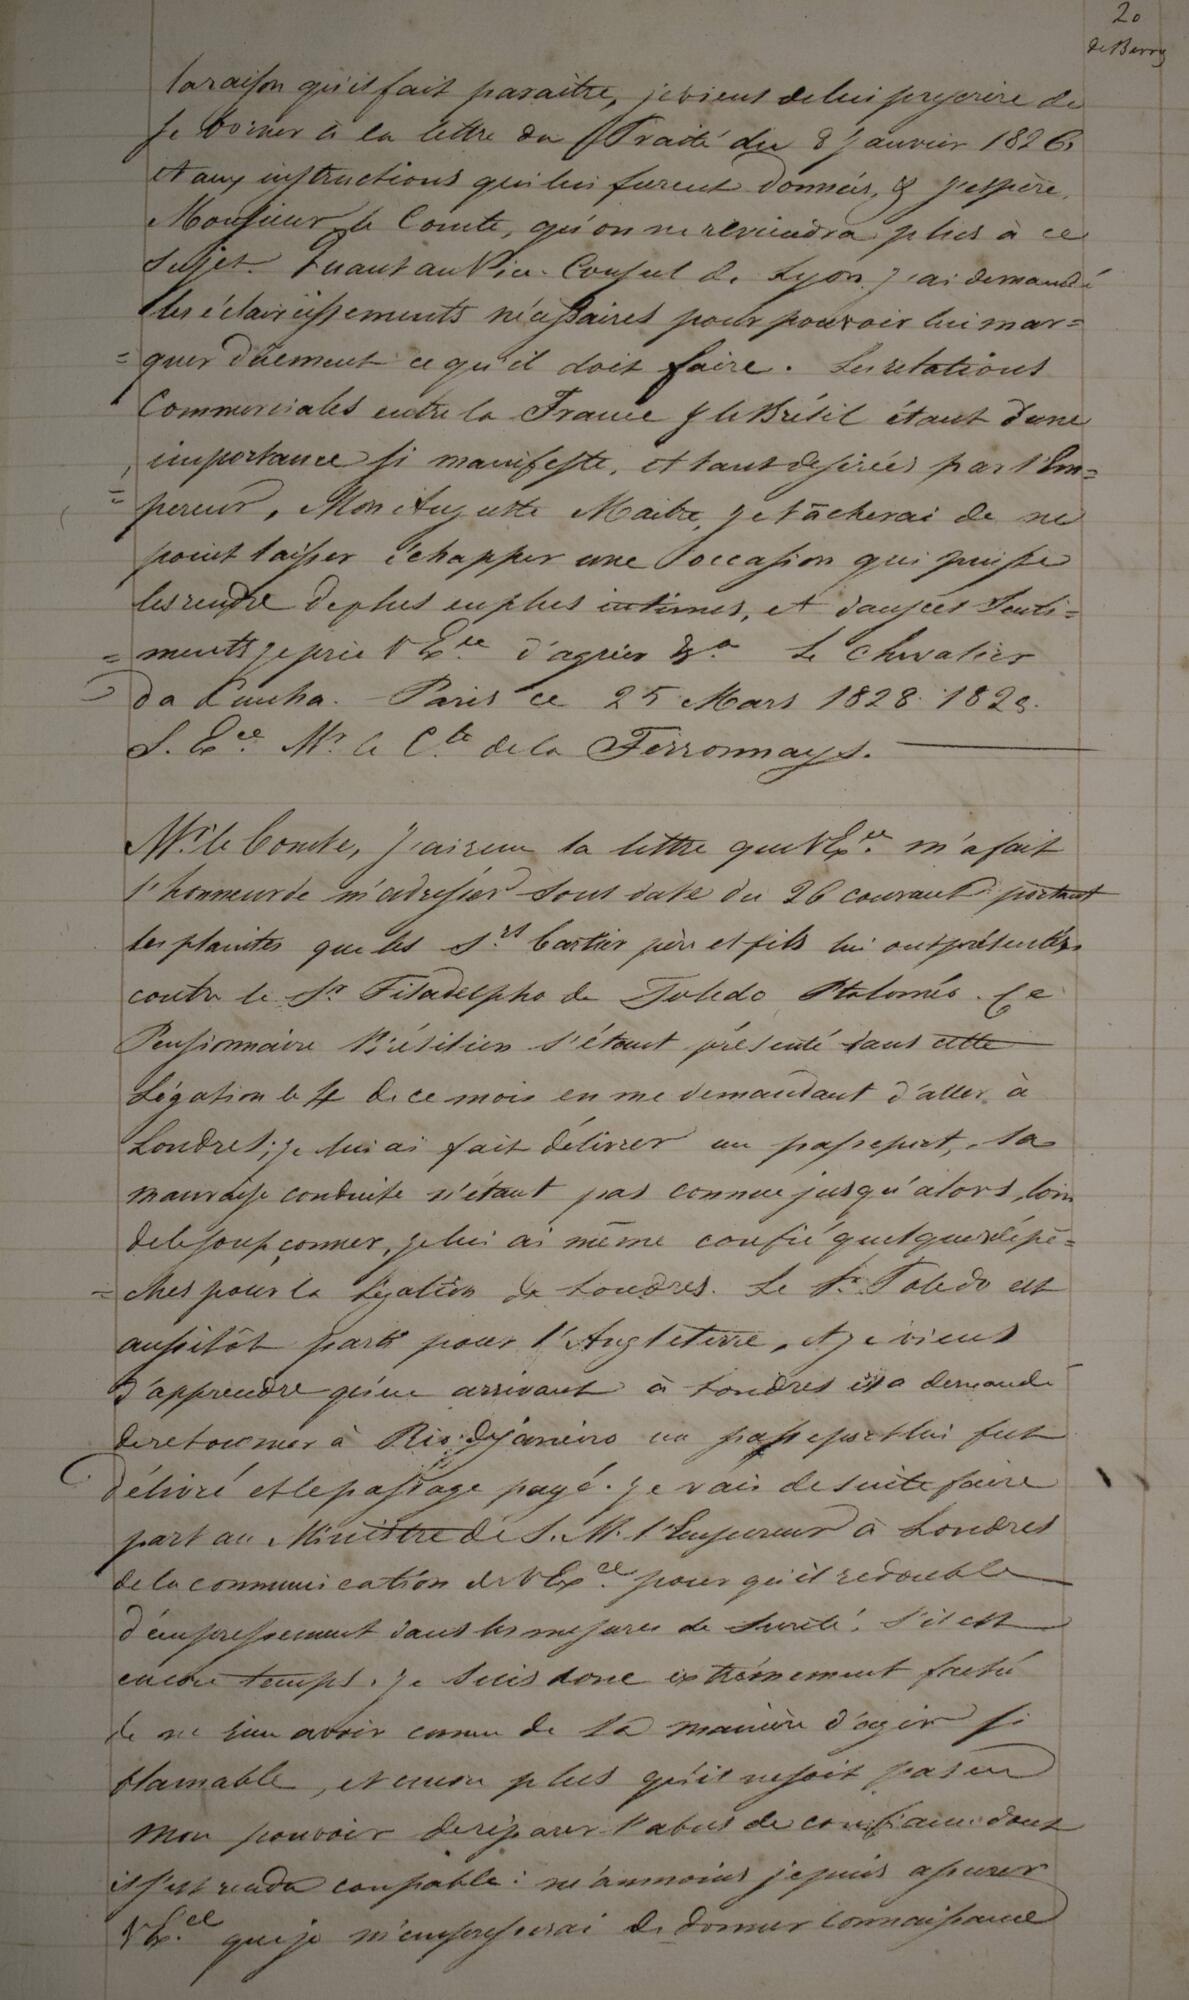 20
de Barry
la raison qu'il fait paraitre, je viens de lui prescrire de
se borner à la lettre du Traité du 8 Janvier 1826
et aux instructions qui lui furent données, & j'espère,
Monsieur le Comte, qu'on ne reviendra plus à ce
sujet. Quant au Vice-Consul de Lyon j'ai demandé
les éclaircissements nécessaires pour pouvoir lui mar=
=quer dûement ce qu'il doit faire. Les relations
Commerciales entre la France & le Brésil étant d'une
importance si manifeste, et tant desirées par l'Em=
=pereur, Mon Auguste Maitre, je tâcherai de ne
point laisser échapper une occasion qui puisse
les rendre de plus en plus intimes, et dans ces senti=
=ments je prie V Exce. d'agréer &a. Le Chevalier
da Cunha. - Paris ce 25 Mars 1828. 1828.
S. Exce. Mr le Cte de la Ferronnays.
Mr. le Comte, J'ai reçu la lettre que V Exce. m'a fait
l'honneur de m'adresser sous date du 26 courant portant
les plaintes que les Srs. Cartier père et fils lui ont présentées
contre le Sr Filadelpho de Toledo Ptolomés. Ce
Pensionnaire Brésilien s'étant présenté dans cette
Légation le 4 de ce mois en me demandant d'aller à
Londres; je lui ai fait délivrer un passeport, sa
mauvaise conduite n'étant pas connue jusqu'alors, loin
de le soupçonner, je lui ai même confié quelques dépê=
=ches pour la Légation de Londres. Le Sr. Toledo est
aussitôt parti pour l'Angleterre, et je viens
d'apprendre qu'en arrivant à Londres il a demandé
de retourner à Rio de Janeiro un passeport lui fut
délivré et le passage payé. Je vais de suite faire
part au Ministre de S. M. l'Empereur à Londres
de la communication de V Exce. pour qu'il redouble
d'empressement dans les mesures de sureté, s'il est
encore temps. Je suis donc extrêmement faché
de ne rien avoir connu de sa manière d'agir si
blamable, et encore plus qu'il ne soit pas en
mon pouvoir de réparer l'abus de confiance dont
il s'est rendu coupable: néanmoins je puis assurer
V Exce. que je m'empresserai de donner connaissance